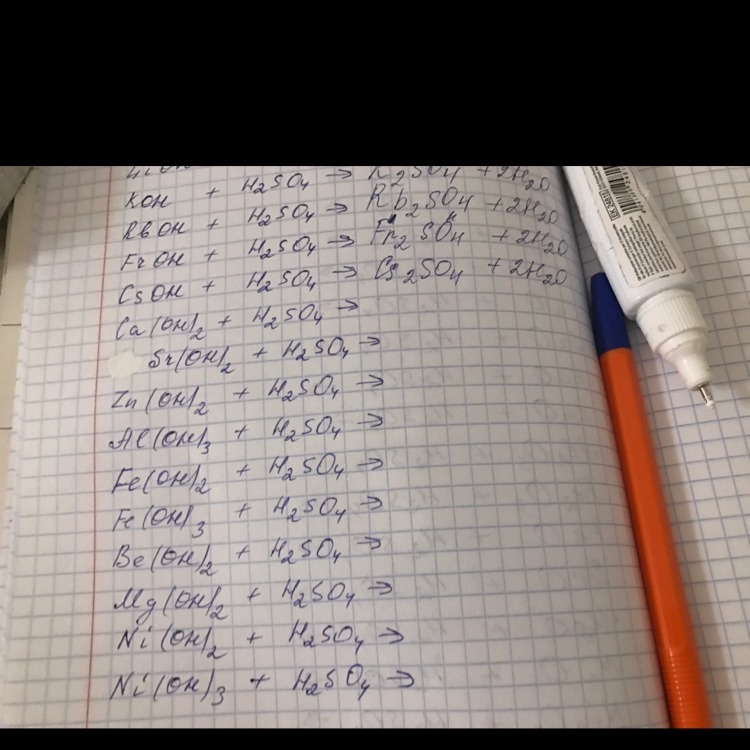 KOH + H₂SO₄ → K₂SO₄ + 2H₂O
RbOH + H₂SO₄ → Rb₂SO₄ + 2H₂O
FrOH + H₂SO₄ → Fr₂SO₄ + 2H₂O
CsOH + H₂SO₄ → Cs₂SO₄ + 2H₂O
Ca(OH)₂ + H₂SO₄ →
Sr(OH)₂ + H₂SO₄ →
Zn(OH)₂ + H₂SO₄ →
Al(OH)₃ + H₂SO₄ →
Fe(OH)₂ + H₂SO₄ →
Fe(OH)₃ + H₂SO₄ →
Be(OH)₂ + H₂SO₄ →
Mg(OH)₂ + H₂SO₄ →
Ni(OH)₂ + H₂SO₄ →
Ni(OH)₃ + H₂SO₄ →